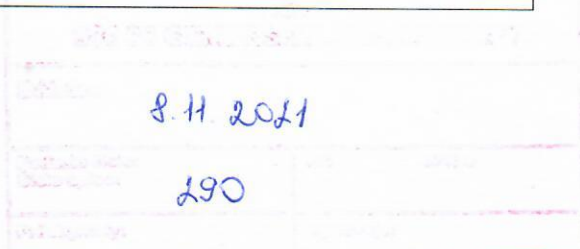 8.11.2021
290